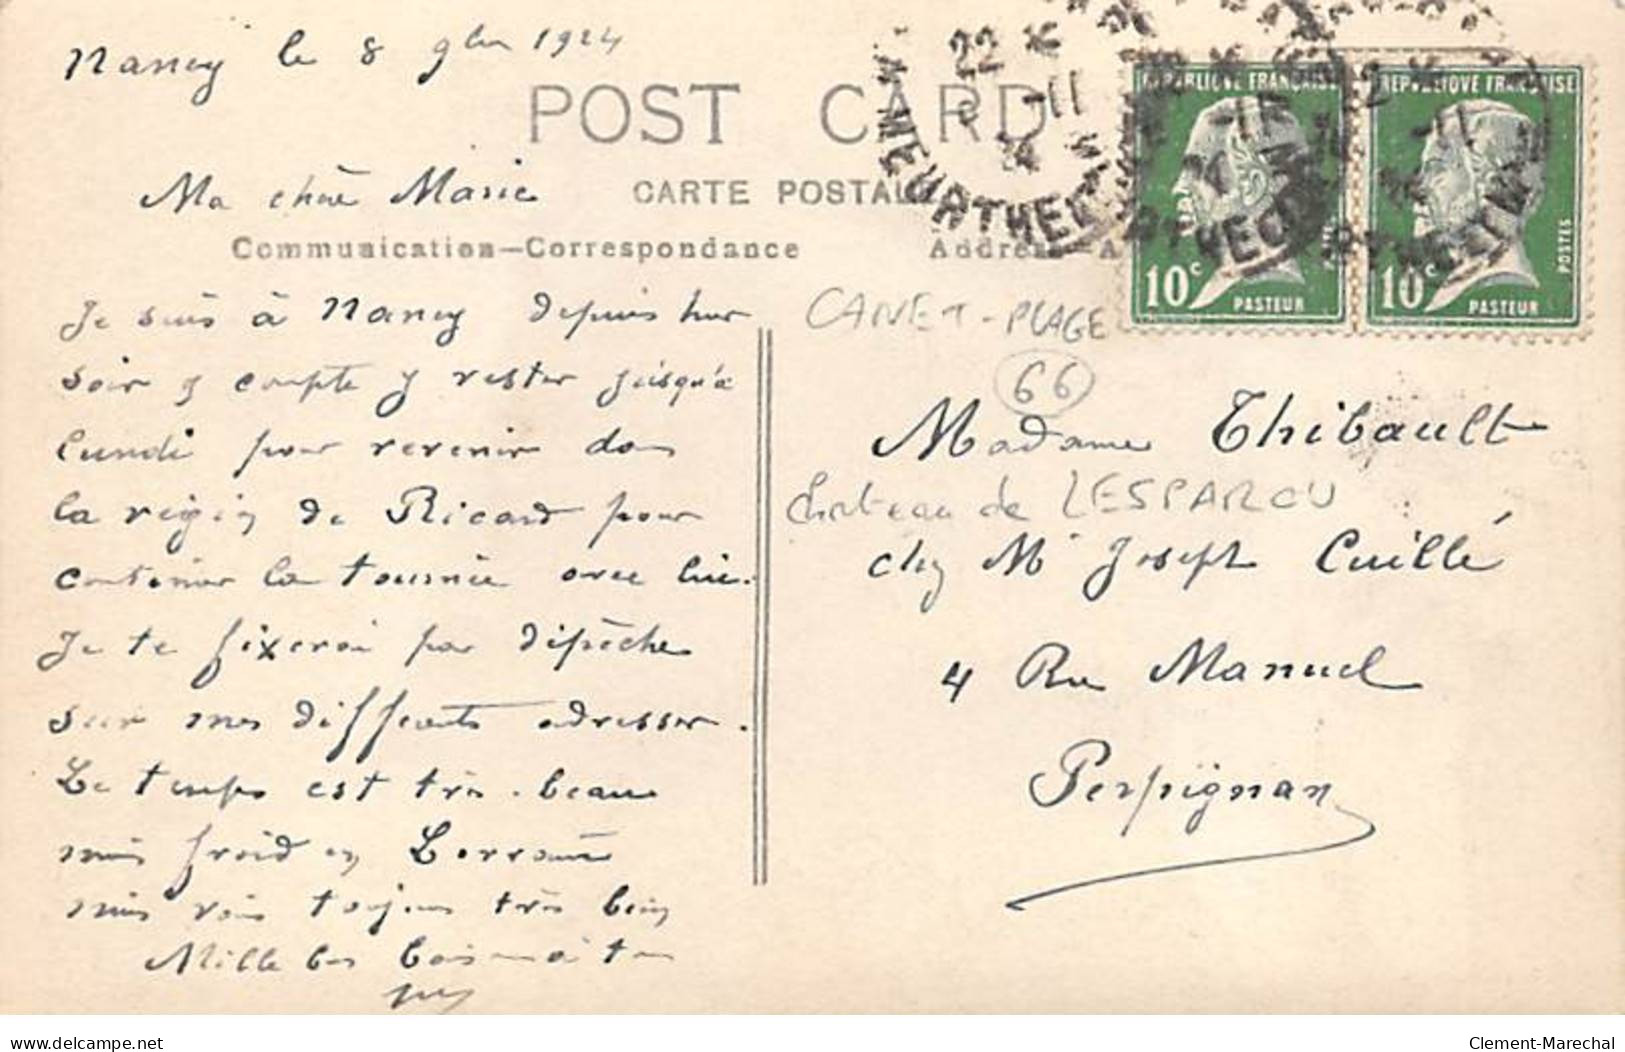 Nancy le 8 9bre 1924
POST CARD
Ma chère Marie
CARTE POSTALE
Communication—Correspondance
Address—A
22
MEURTHE ET M
REPUBLIQUE FRANÇAISE
10c
PASTEUR
POSTES
REPUBLIQUE FRANÇAISE
10c
PASTEUR
POSTES
Je suis à Nancy depuis hier
soir y compte y rester jusqu'à
lundi pour revenir dans
la région de Ricard pour
continuer la tournée avec lui.
Je te fixerai par dépèches
sur mes différents adresses.
Le temps est très beau
mais froid en Lorraine
mais vais toujours très bien
Mille bons baisers à tous
CANET-PLAGE
66
Madame Thibault
Chateau de LESPARCU
chez Mr Joseph Cuillé
4 Rue Manuel
Perpignan
delcampe.net
Clement-Marechal